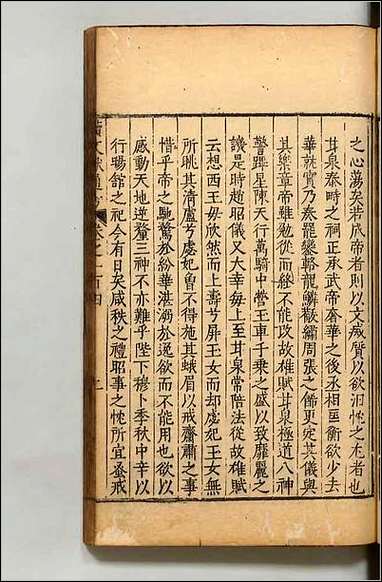 之心蕩矣若成帝者則以文滅質以欲汩性之尤者也
甘泉泰畤之祠正承武帝奢華之後丞相匡衡欲少去
華就實乃奏罷鸞輅龍鱗歌繡周張之飾更定其儀與
其樂章帝雖勉從而終不能改故雄賦甘泉極道八神
警蹕星陳天行萬騎中營玉車千乘之盛以致靡麗之
譏是時趙昭儀又大幸每上至甘泉常陪法從故雄賦
云想西王母欣然而上壽兮屏玉女而却虙妃玉女無
所眺其清盧兮虙妃曽不得施其蛾眉以戒齋肅之事
惜乎帝之馳騖於紛華湛溺於逸欲而不能用也欲以
感動天地逆釐三神不亦難乎陛下穆卜季秋中辛以
行暘舘之祀今有日矣咸秩之禮昭事之忱所宜蚤戒